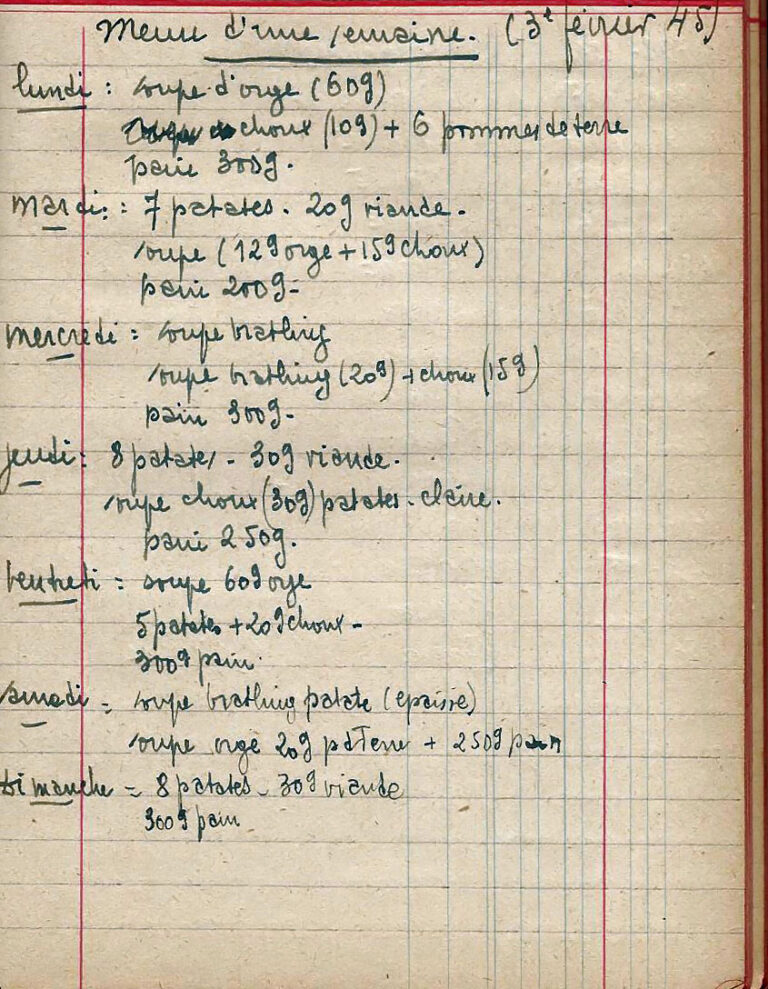 Menu d'une semaine. (3e février 45)
lundi : soupe d'orge (60g)
choux (10g) + 6 pommes de terre
pain 300g.
mardi : 7 patates. 20g viande.
soupe (12g orge + 15g choux)
pain 200g-
mercredi : soupe brathling
soupe brathling (20g) + choux (15g)
pain 300g-
jeudi : 8 patates - 30g viande.
soupe choux (30g) patates. claire.
pain 250g.
Vendredi = soupe 60g orge
5 patates + 20g choux -
300g pain.
samedi = soupe brathling patate (epaisse)
soupe orge 20g pdTerre + 250g pain
dimanche = 8 patates - 30g viande
300g pain